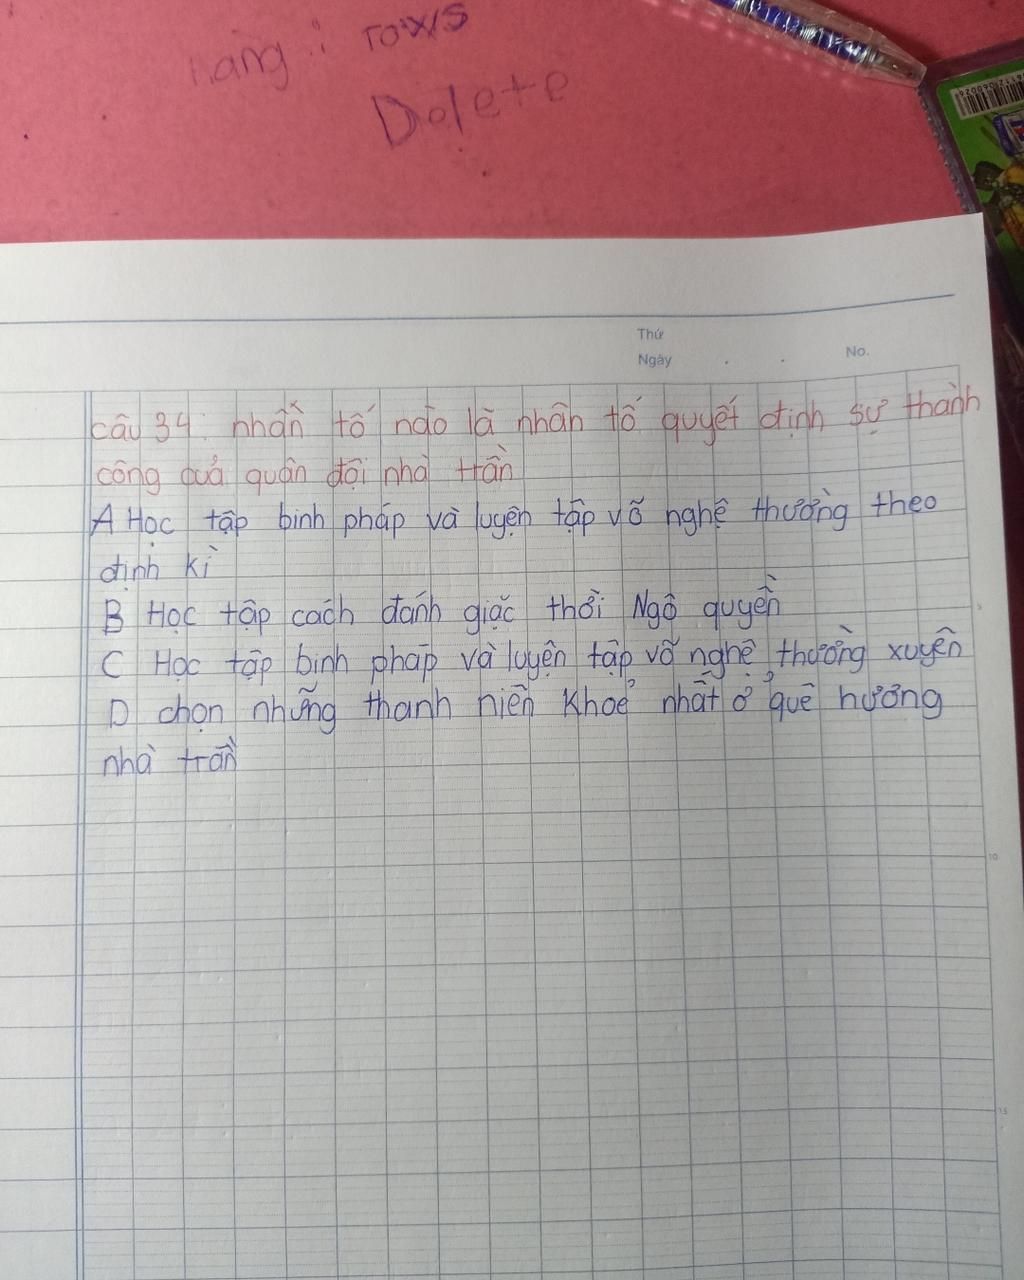 hàng : rows
Delete
Thứ
Ngày . . No.
câu 34: nhẫn tố nào là nhân tố quyết định sự thành
công quả quân đội nhà trần
A Học tập binh pháp và luyện tập võ nghệ thường theo
định kì
B Học tập cách đánh giặc thời Ngô quyền
C Học tập binh pháp và luyện tập võ nghệ thường xuyên
D chọn những thanh niên khoẻ nhất ở quê hương
nhà trần
5
10
15